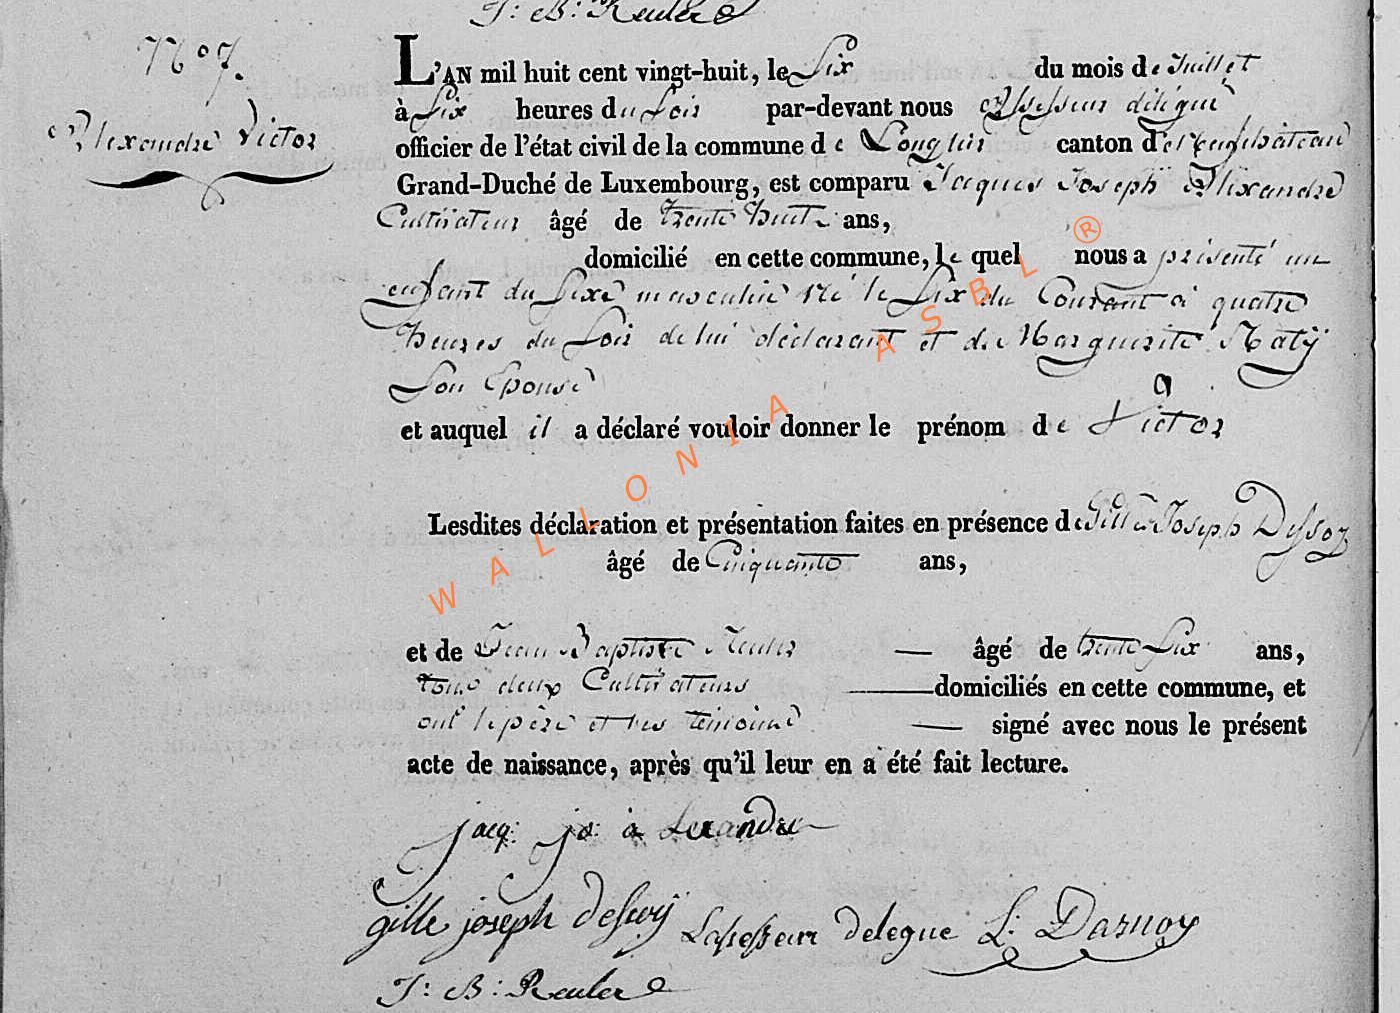 J: B: Reuler
N° 7.
Alexandre Victor
L'AN mil huit cent vingt-huit, le Six du mois de Juillet
à Six heures du Soir par-devant nous Assesseur délégué
officier de l'état civil de la commune de Longlier canton de Neufchâteau
Grand-Duché de Luxembourg, est comparu Jacques Joseph Alexandre
Cultivateur âgé de trente huit ans,
domicilié en cette commune, le quel nous a présenté un
enfant du Sexe masculin Né le Six du Courant à quatre
heures du Soir de lui déclarant et de Marguerite Matÿ
Son Epouse
et auquel il a déclaré vouloir donner le prénom de Victor
Lesdites déclaration et présentation faites en présence de Gille Joseph Dessoy
âgé de Cinquante ans,
et de Jean Baptiste Reuler — âgé de trente Six ans,
tous deux Cultivateurs — domiciliés en cette commune, et
ont le père et les témoins — signé avec nous le présent
acte de naissance, après qu'il leur en a été fait lecture.
jacq: jo: alexandre
gille joseph dessoÿ Lassesseur delegue L: Darnoy
J: B: Reuler
WALLONIA ASBL ®